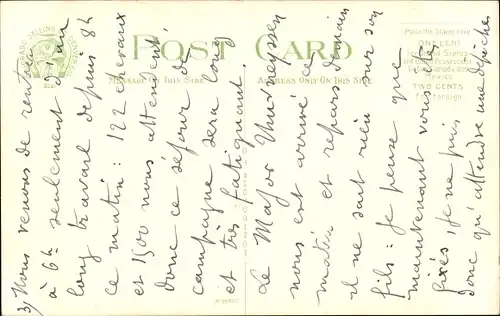 POST CARD
MESSAGE ON THIS SIDE
ADDRESS ONLY ON THIS SIDE
Place the Stamp here
ONE CENT
TWO CENTS
For Foreign
3) Nous venons de rentrer
à 6h seulement d'un
long travail depuis 8h
ce matin: 122 chevaux
et 1500 nous attendent
donc ce séjour de
campagne sera long
et très fatiguant.
Le Major
nous est arrivé ce
matin et repars demain
il ne sait rien pour son
fils: je pense que
maintenant vous êtes
fixés, je ne puis
donc qu'attendre une dépêche